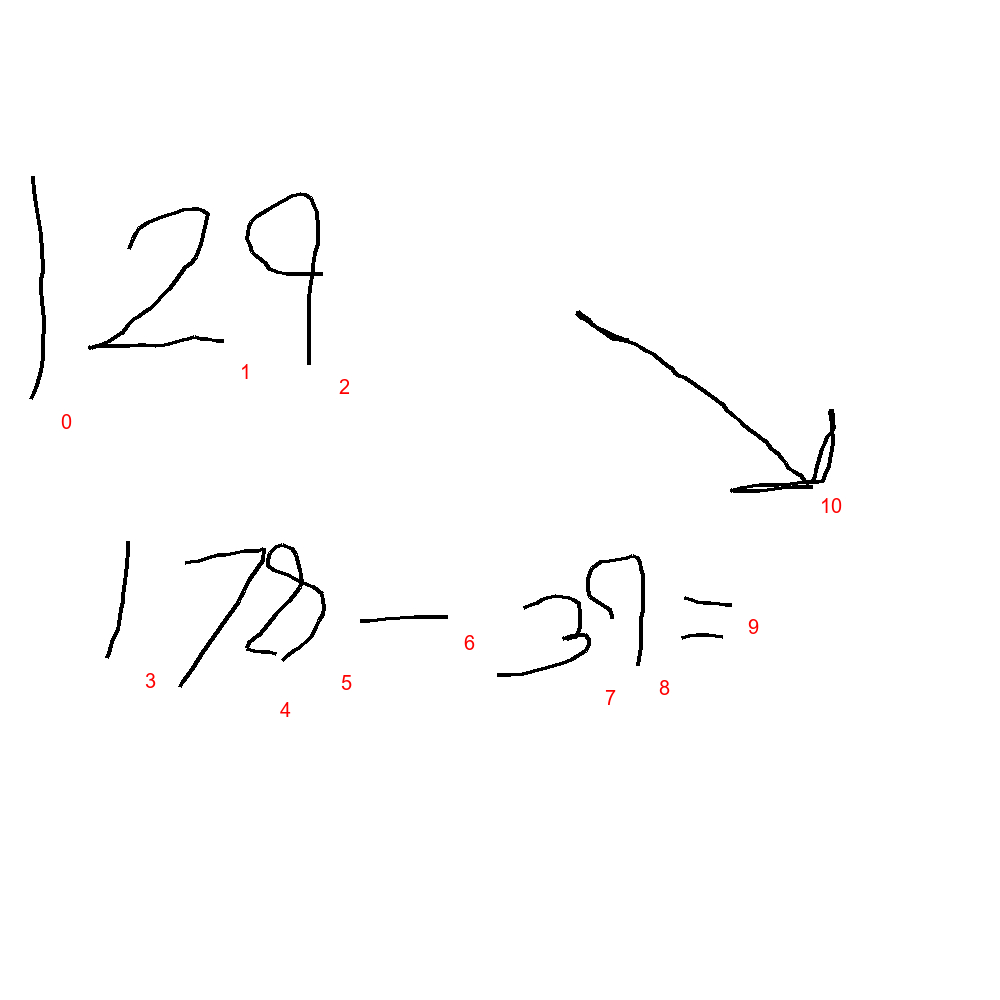 129
0 1 2
10
178 - 39 =
3 4 5 6 7 8 9